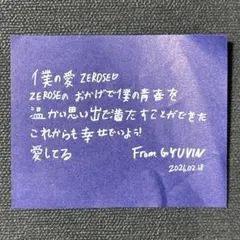 僕の愛 ZEROSE♡
ZEROSEのおかげで僕の青春を
温かい思い出で満たすことができた
これからも幸せでいよう!
愛してる From GYUVIN
2026.02.18